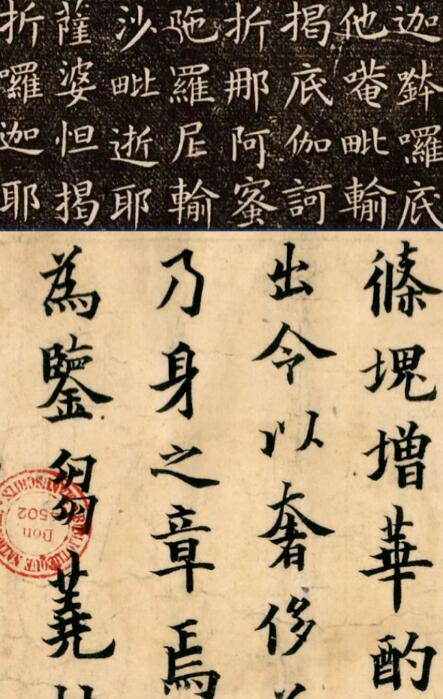 迦鉢囉底
他唵毗輸
揭底伽訶
折那阿蜜
陁羅尼輸
沙毗逝耶
薩婆怛揭
折囉迦耶
塊增華酌
出令以奢侈
乃身之章焉
為鑒芻蕘
Don